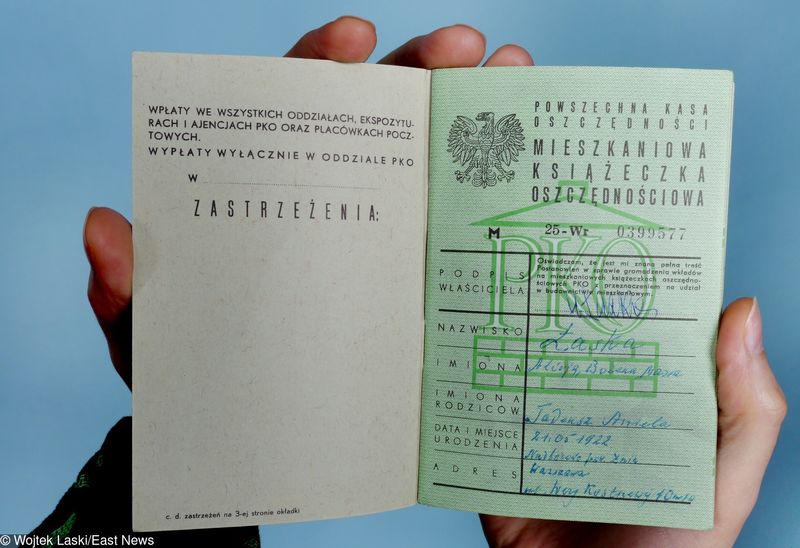 WPŁATY WE WSZYSTKICH ODDZIAŁACH, EKSPOZYTU-
RACH I AJENCJACH PKO ORAZ PLACÓWKACH POCZ-
TOWYCH.
WYPŁATY WYŁĄCZNIE W ODDZIALE PKO
W
ZASTRZEŻENIA:
c. d. zastrzeżeń na 3-ej stronie okładki
POWSZECHNA KASA
OSZCZĘDNOŚCI
MIESZKANIOWA
KSIĄŻECZKA
OSZCZĘDNOŚCIOWA
M 25-Wr 0399577
PKO
Oświadczam, że jest mi znana pełna treść
Postanowień w sprawie gromadzenia wkładów
na mieszkaniowych książeczkach oszczędno-
ściowych PKO przeznaczeniem na udział
w budownictwie mieszkaniowym
PODPIS
WŁAŚCICIELA
NAZWISKO Łaska
IMIONA Alicja Bożena Maria
IMIONA
RODZICÓW Tadeusz Aniela
DATA I MIEJSCE
URODZENIA 21.05 1922
ADRES Warszawa
© Wojtek Laski/East News